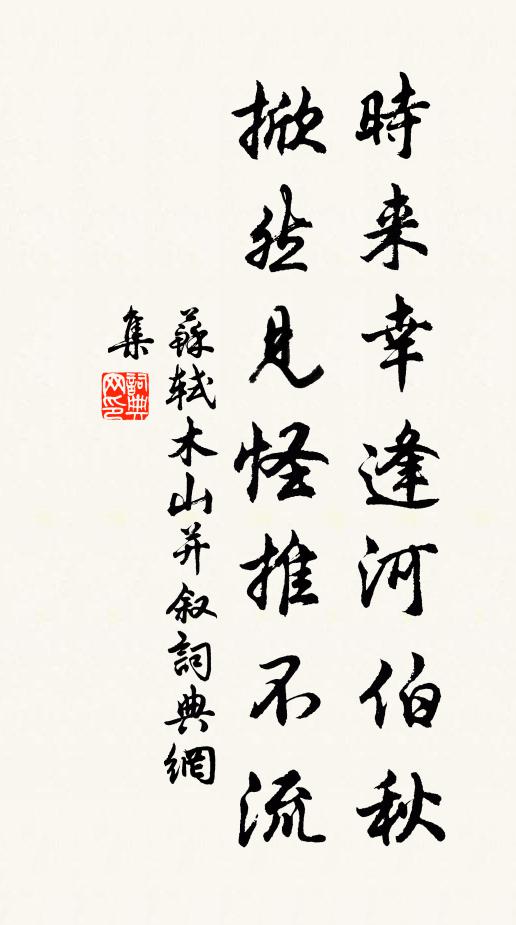 時来幸逢河伯秋
掀然見怪推不流
蘇軾木山并叙詞典網
集
詞典
网印